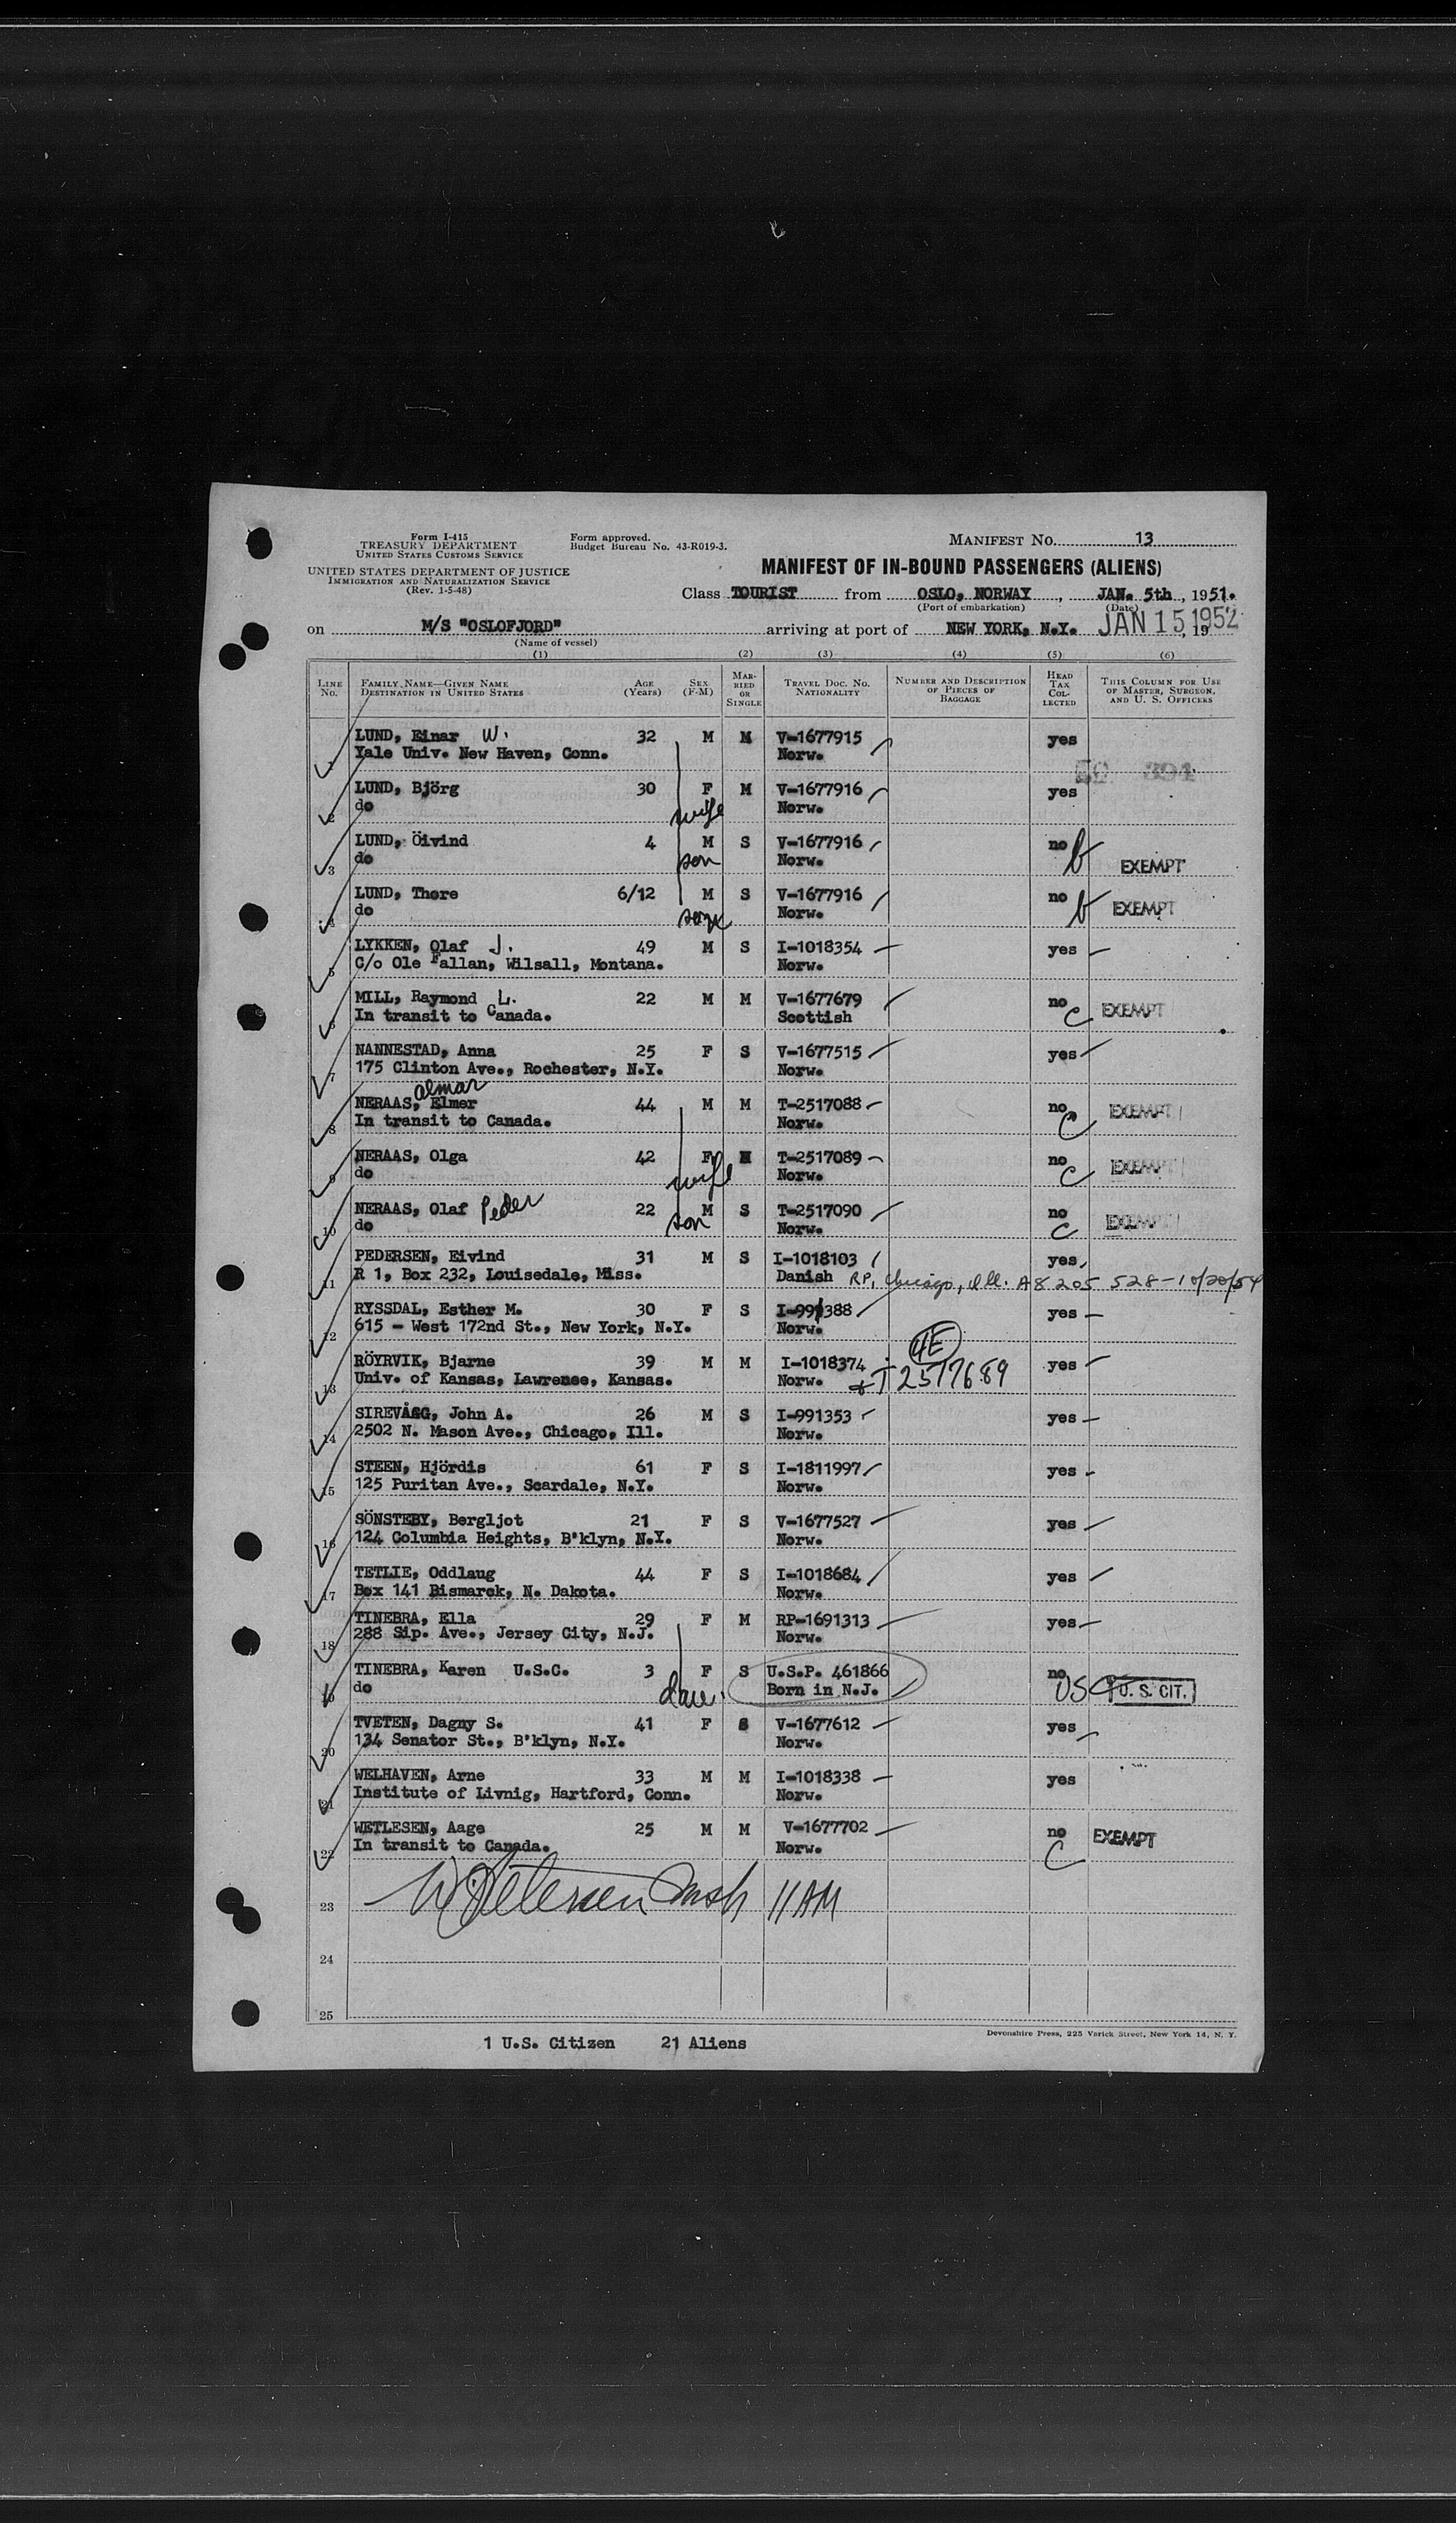 Form I-415
TREASURY DEPARTMENT
UNITED STATES CUSTOMS SERVICE
Form approved.
Budget Bureau No. 43-R019-3.
MANIFEST NO. 13
UNITED STATES DEPARTMENT OF JUSTICE
IMMIGRATION AND NATURALIZATION SERVICE
(Rev. 1-5-48)
MANIFEST OF IN-BOUND PASSENGERS (ALIENS)
Class TOURIST from OSLO, NORWAY, JAN. 5th, 1951.
(Port of embarkation) (Date)
on M/S "OSLOFJORD" arriving at port of NEW YORK, N.Y. JAN 15 1952, 19
(Name of vessel)
(1) (2) (3) (4) (5) (6)
LINE NO. FAMILY NAME—GIVEN NAME DESTINATION IN UNITED STATES AGE (YEARS) SEX (F-M) MARRIED OR SINGLE TRAVEL DOC. NO. NATIONALITY NUMBER AND DESCRIPTION OF PIECES OF BAGGAGE HEAD TAX COLLECTED THIS COLUMN FOR USE OF MASTER, SURGEON, AND U. S. OFFICERS
1 LUND, Einar W. 32 M M V-1677915 yes
Yale Univ. New Haven, Conn. Norw.
2 LUND, Björg 30 F M V-1677916 yes
do wife Norw.
3 LUND, Öivind 4 M S V-1677916 no b EXEMPT
do son Norw.
4 LUND, Thore 6/12 M S V-1677916 no b EXEMPT
do son Norw.
5 LYKKEN, Olaf J. 49 M S I-1018354 yes
C/o Ole Fallan, Wilsall, Montana. Norw.
6 MILL, Raymond L. 22 M M V-1677679 no C EXEMPT
In transit to Canada. Scottish
7 NANNESTAD, Anna 25 F S V-1677515 yes
175 Clinton Ave., Rochester, N.Y. Norw.
almar
8 NERAAS, Elmer 44 M M T-2517088 no C EXEMPT
In transit to Canada. Norw.
9 NERAAS, Olga 42 F M T-2517089 no C EXEMPT
do wife Norw.
10 NERAAS, Olaf Peder 22 M S T-2517090 no C EXEMPT
do son Norw.
11 PEDERSEN, Eivind 31 M S I-1018103 yes
R 1, Box 232, Louisedale, Miss. Danish RP, Chicago, Ill. A8 205 528-10/20/54
12 RYSSDAL, Esther M. 30 F S I-991388 yes
615 - West 172nd St., New York, N.Y. Norw.
4E
13 RÖYRVIK, Bjarne 39 M M I-1018374 yes
Univ. of Kansas, Lawrence, Kansas. Norw. & T 2517689
14 SIREVÅG, John A. 26 M S I-991353 yes
2502 N. Mason Ave., Chicago, Ill. Norw.
15 STEEN, Hjördis 61 F S I-1811997 yes
125 Puritan Ave., Scardale, N.Y. Norw.
16 SÖNSTEBY, Bergljot 21 F S V-1677527 yes
124 Columbia Heights, B'klyn, N.Y. Norw.
17 TETLIE, Oddlaug 44 F S I-1018684 yes
Box 141 Bismarck, N. Dakota. Norw.
18 TINEBRA, Ella 29 F M RP-1691313 yes
288 Sip. Ave., Jersey City, N.J. Norw.
19 TINEBRA, Karen U.S.C. 3 F S U.S.P. 461866 no USC U. S. CIT.
do dau. Born in N.J.
20 TVETEN, Dagny S. 41 F S V-1677612 yes
134 Senator St., B'klyn, N.Y. Norw.
21 WELHAVEN, Arne 33 M M I-1018338 yes
Institute of Livnig, Hartford, Conn. Norw.
22 WETLESEN, Aage 25 M M V-1677702 no C EXEMPT
In transit to Canada. Norw.
23 W Petersen Insp 11 AM
24
25
Devonshire Press, 225 Varick Street, New York 14, N. Y.
1 U.S. Citizen 21 Aliens